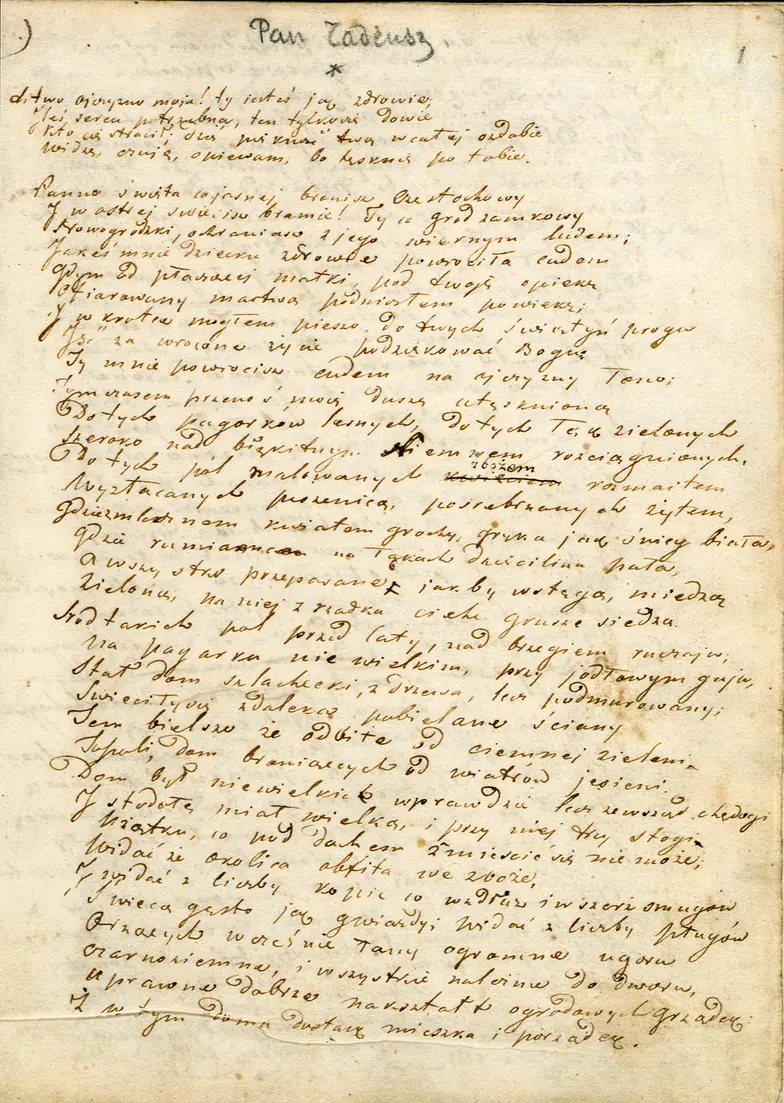 Pan Tadeusz
*
1
Litwo ojczyzno moja! ty jesteś jak zdrowie,
Ileś serca potrzebna, ten tylko się dowie
Kto cię stracił; dziś piękność twą w całej ozdobie
Widzę, czuję, opiewam, bo tęsknię po tobie.
Panno święta co jasnej bronisz Częstochowy
I w ostrej świecisz bramie! Ty co gród zamkowy
Nowogródzki, ochraniasz z jego wiernym ludem;
Jakeś mnie dziecku zdrowie powróciła cudem
Gdym od płaczącej matki, pod twoją opiekę
Ofiarowany martwą podniosłem powiekę;
I w krotce mogłem pieszo do twych świątyń progu
Iść za wrócone życie podziękować Bogu
Ty mnie powrócisz cudem na ojczyzny łono;
Tymczasem przenoś moją duszę utęsknioną
Do tych pagorków leśnych, do tych łąk zielonych
Szeroko nad błękitnym Niemnem rozciągnionych,
Do tych pól malowanych kwieciem zbożem rozmaitem
Wyzłacanych pszenicą, posrebrzanych żytem,
Gdzie kwiatem grochy, gryka jak śnieg biała,
Gdzie na łąkach dzięcielina pała,
A wszystko przepasane jak by wstęgą, miedzą
Zieloną, na niej z rzadka ciche grusze siedzą.
Sród takich pól przed laty, nad brzegiem ruczaju,
Na pagorku niewielkim, przy jodłowym gaju,
Stał dom szlachecki, z drzewa, lecz podmurowany;
Swieciły się zdaleka pobielane ściany
Tem bielsze że odbite od ciemnej zieleni
Topoli, dom broniących od wiatrów jesieni.
Dom był niewielki wprawdzie lecz zewsząd chędogi
I stodołę miał wielką, i przy niej trzy stogi
Użątku, co pod dachem zmieścić się nie może;
Widać że okolica obfita we zboże,
I widać z liczby kopic co wzdłuż i wszerz smugów
Swiecą gęsto jak gwiazdy; widać z liczby pługów
Orzących wcześnie łany ogromne ugoru
Czarnoziemne, i wszystkie należne do dworu,
Uprawne dobrze nakształt ogrodowych grządek;
I w tym domu dostatek mieszka i porządek.